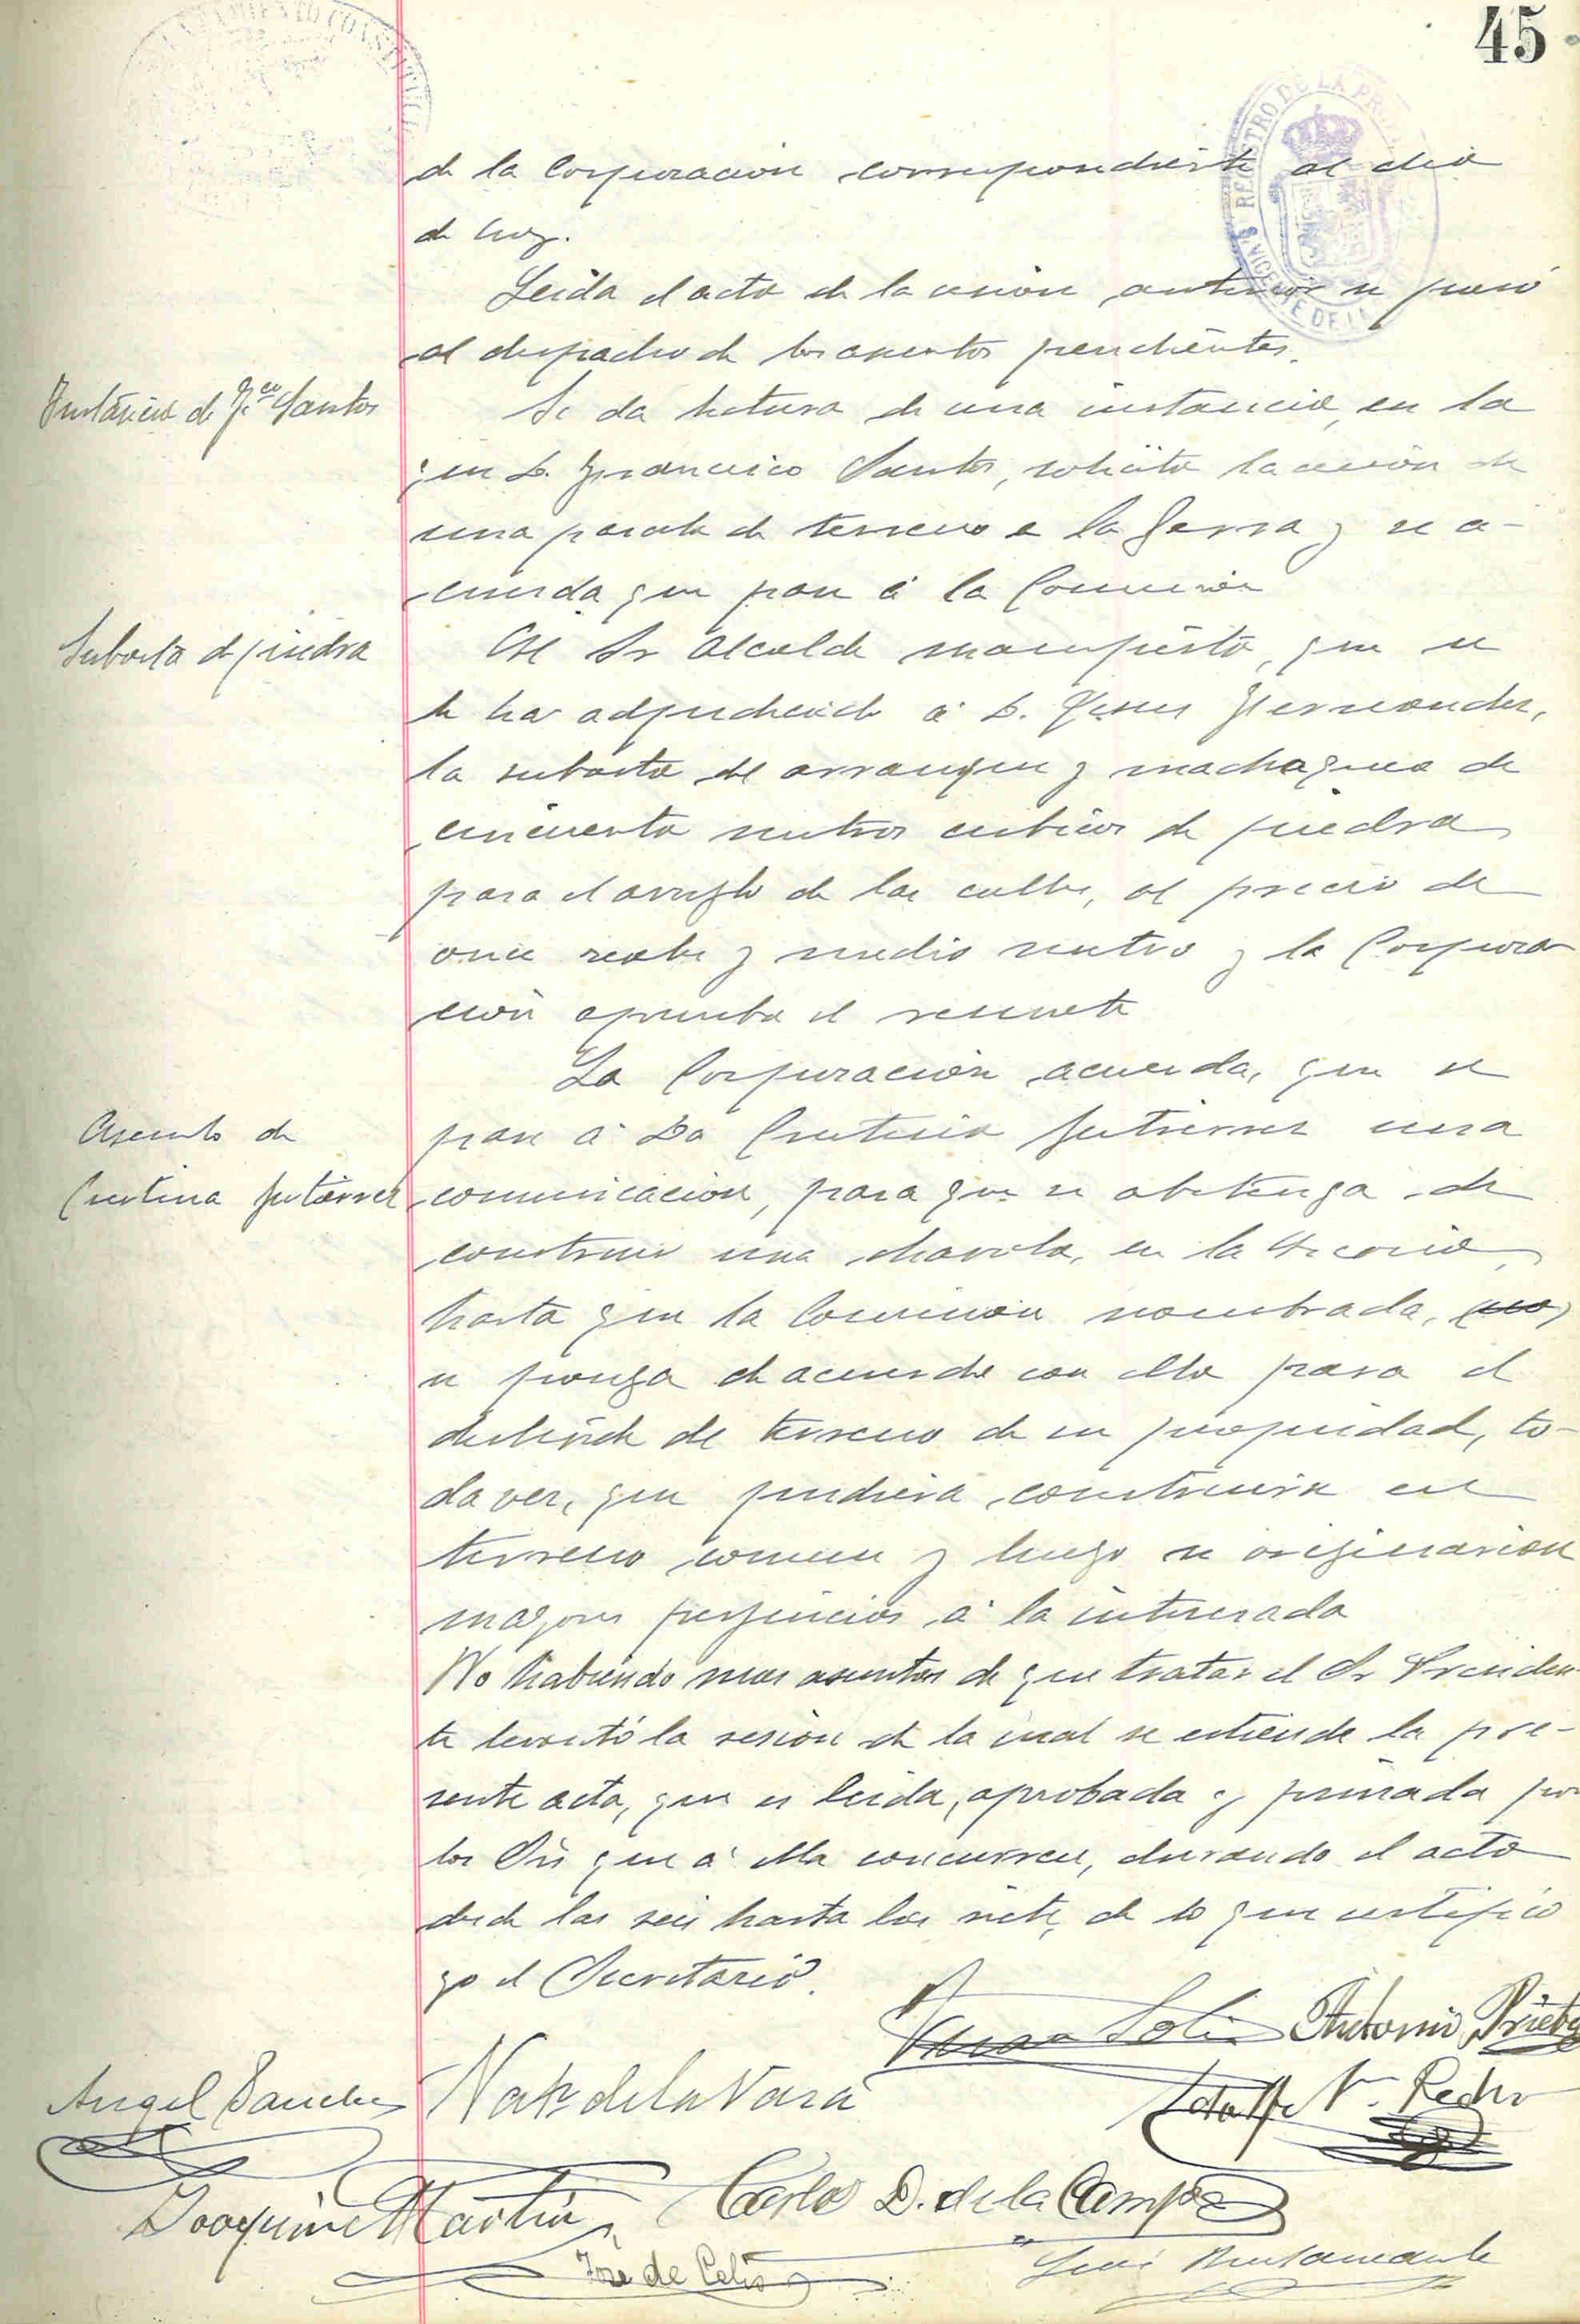 45
de la Corporación correspondiente al dia
de hoy.
Leida el acta de la sesión anterior se pasó
al despacho de los asuntos pendientes.
Instáncia de Fco Santos
Se da lectura de una instancia, en la
que D. Francisco Santos, solicita la cesión de
una parcela de terreno a la Gerra y se a-
cuerda que pase á la Comisión
Subasta de piedra
El Sr Alcalde manifiesta, que se
le ha adjudicado á D. Jesus Hernandez,
la subasta del arranque y machaqueo de
cincuenta metros cubicos de piedra
para el arreglo de las calles, al precio de
once reales y medio metro y la Corpora
ción aprueba el remate
La Corporación acuerda, que se
Asunto de
Cristina Gutierrez
pase á Da Cristina Gutierrez una
comunicación, para que se abstenga de
construir una chavola, en la
hasta que la Comisión nombrada, (no)
se ponga de acuerdo con ella para el
deslinde de terreno de su propiedad, to-
da vez, que pudiera construir en
terreno comun y luego se originarian
mayores perjuicios á la interesada
No habiendo mas asuntos de que tratar el Sr Presiden-
te levantó la sesión de la cual se extiende la pre-
sente acta, que es leida, aprobada y firmada por
los Srs que á ella concurren, durando el acto
desde las seis hasta las siete, de lo que certifico
yo el Secretario.
Solis Antonio Prieto
Angel Sanchez Narz de la Vara
Adolfo V. Pedro
Joaquin Martin Carlos D. de la Campa
José de Celis
José Bustamante
REGISTRO DE LA PR
VICENTE DE LA